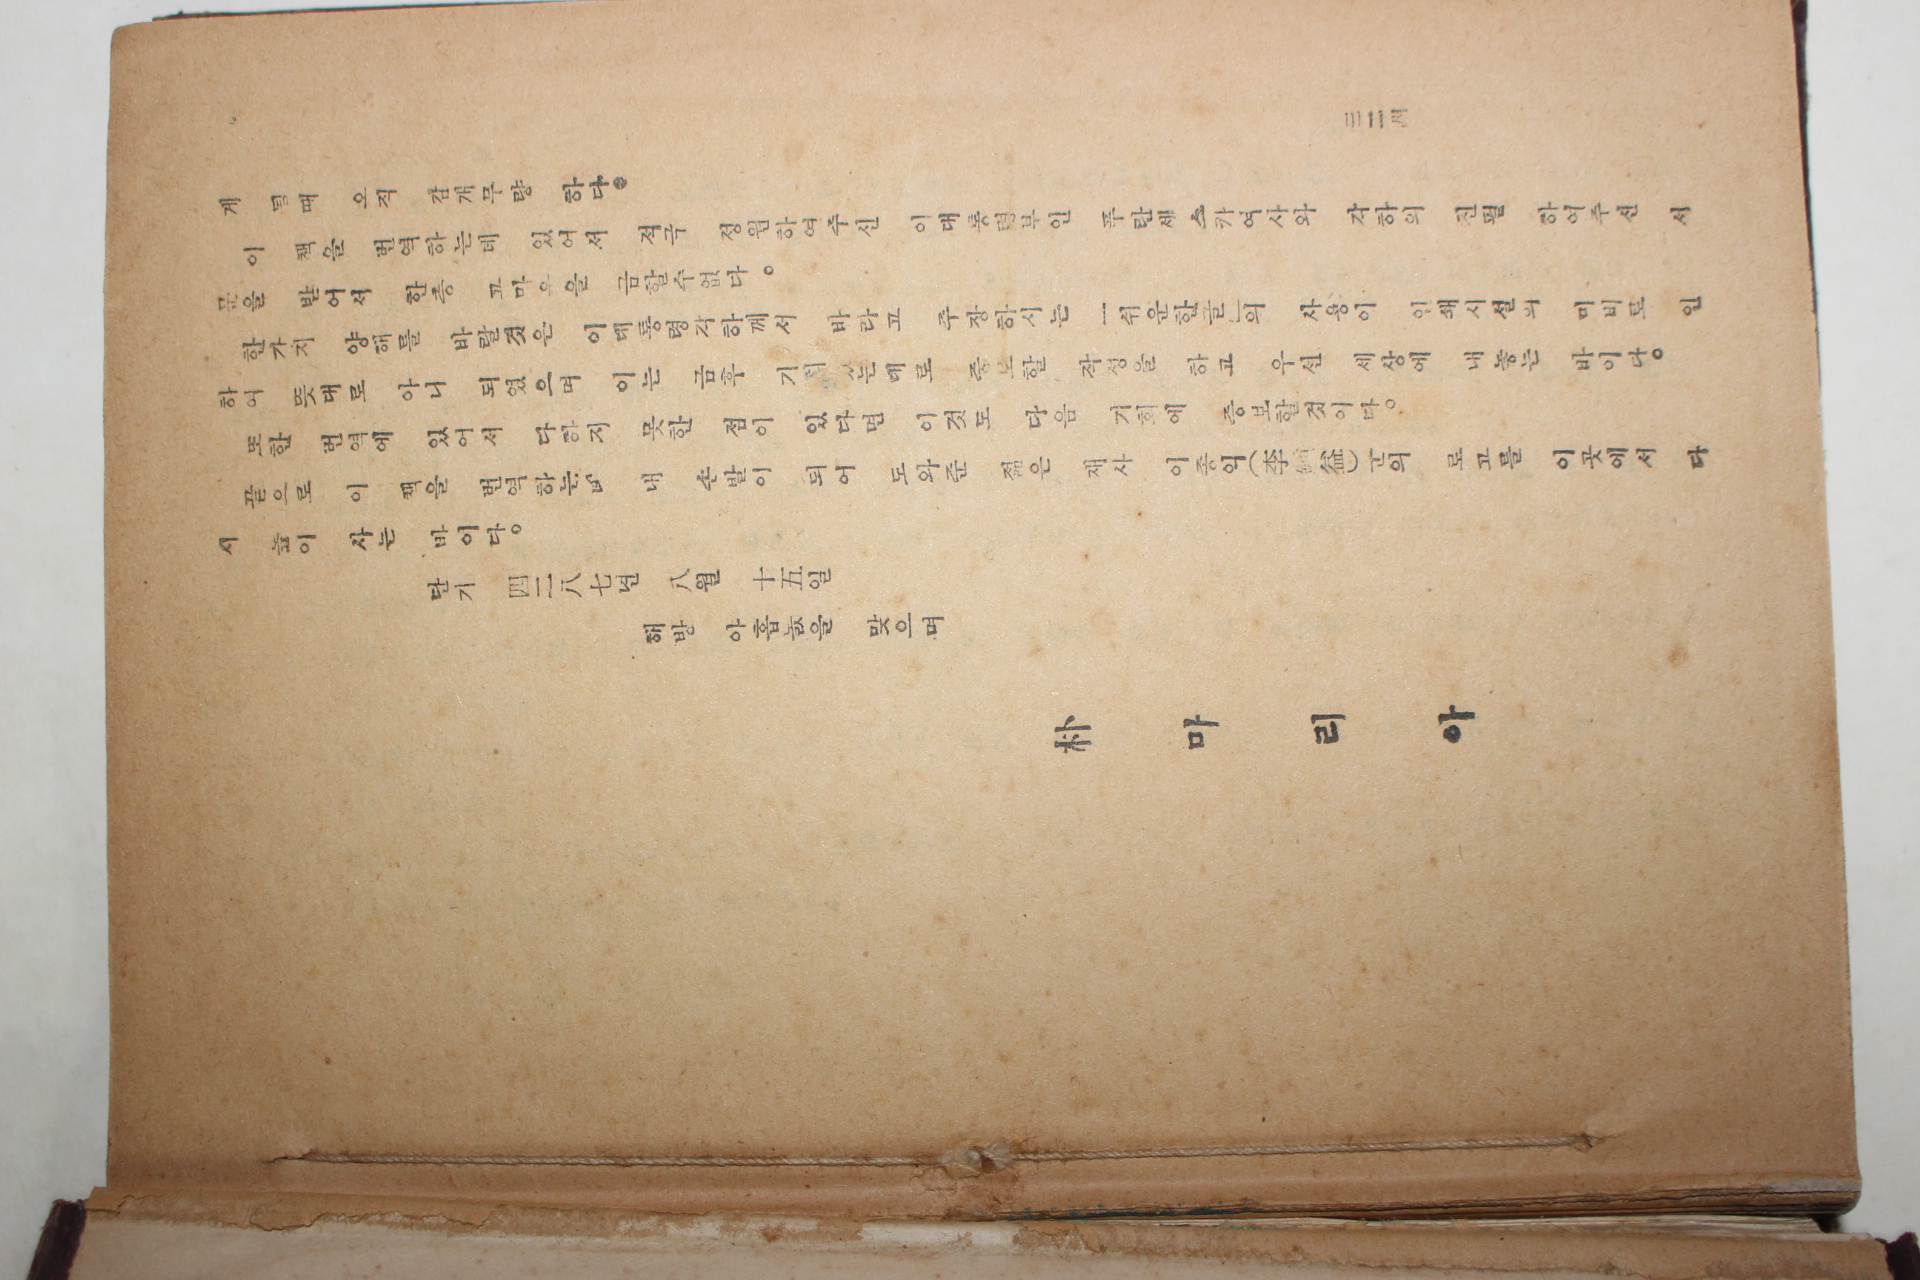 게 될때 오직 감개무량 하다。
이 책을 번역하는데 있어서 적극 정원하여주신 이대통령부인 푸란체스카여사와 각하의 친필 하여주신 서
문을 받어서 한층 고마움을 금할수없다。
한가지 양해를 바랄것은 이대통령각하께서 바라고 주장하시는 「쉬운한글」의 사용이 인쇄시설의 미비로 인
하여 뜻대로 아니 되었으며 이는 금후 기회 는대로 증보할 작정을 하고 우선 세상에 내놓는 바이다。
또한 번역에 있어서 다하지 못한 점이 있다면 이것도 다음 기회에 증보할것이다。
끝으로 이 책을 번역하는데 내 손발이 되어 도와준 젊은 재사 이종익(李 益)군의 로고를 이곳에서 다
시 높이 사는 바이다。
단기 四二八七년 八월 十五일
해방 아홉돐을 맞으며
朴마리아